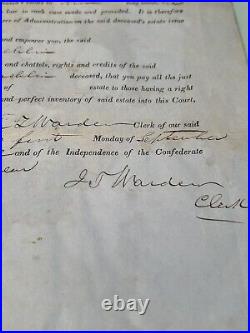 law in such case made and provided. It is therefore
ers of Administration on the said deceased's estate issue
and empower you, the said
and chattels, rights and credits of the said
deceased, that you pay all the just
of estate to those having a right
and perfect inventory of said estate into this Court,
J Warden Clerk of our said
first Monday of September
and of the Independence of the Confederate
year
J J Warden
Clerk